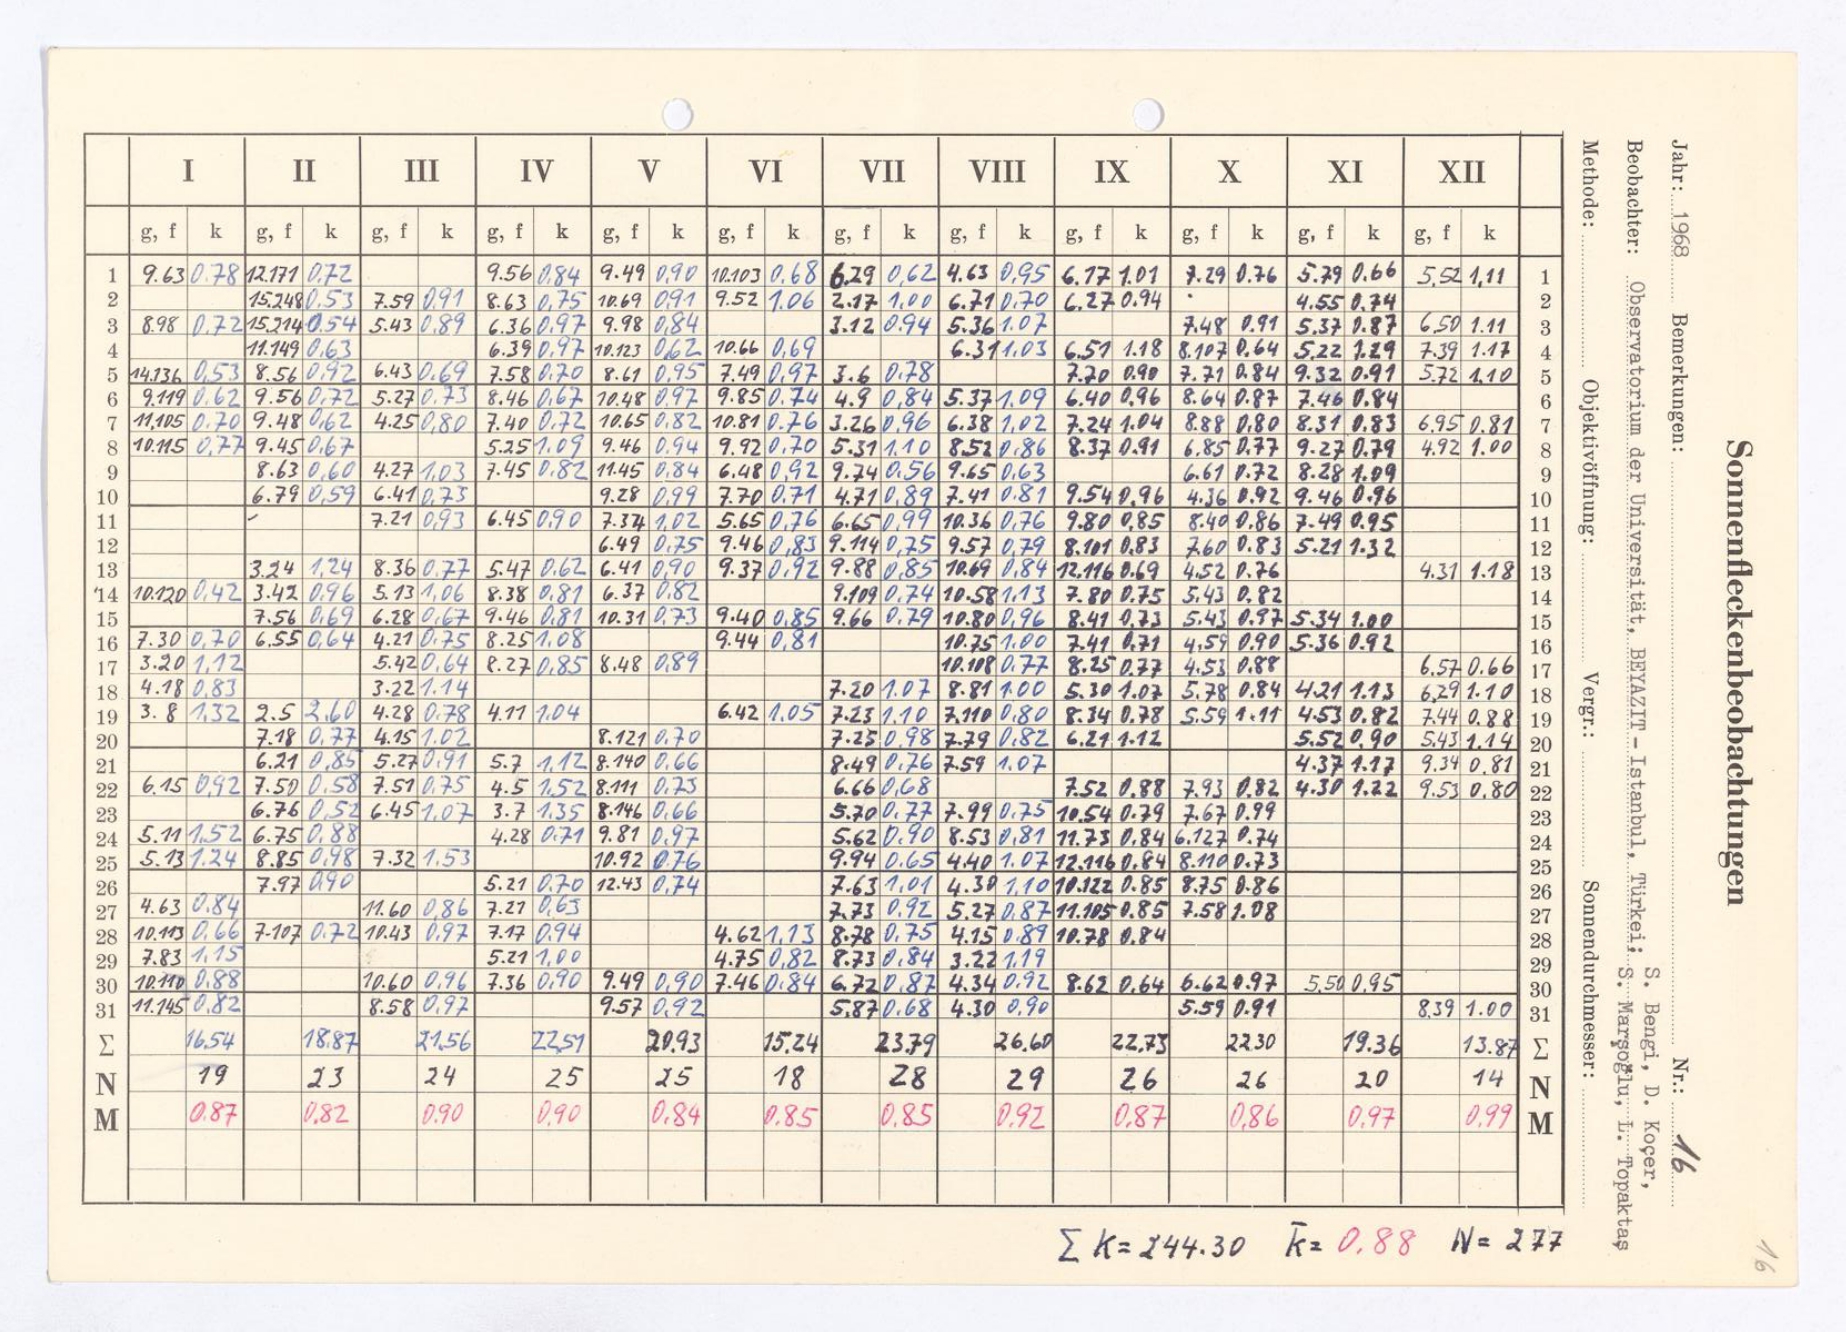 I II III IV V VI VII VIII IX X XI XII
g, f k g, f k g, f k g, f k g, f k g, f k g, f k g, f k g, f k g, f k g, f k g, f k
1 9.63 0.78 12.171 0.72 9.56 0.84 9.49 0.90 10.103 0.68 6.29 0.62 4.63 0.95 6.17 1.01 7.29 0.76 5.79 0.66 5.52 1.11 1
2 15.248 0.53 7.59 0.91 8.63 0.75 10.69 0.91 9.52 1.06 2.17 1.00 6.71 0.70 6.27 0.94 4.55 0.74 2
3 8.98 0.72 15.214 0.54 5.43 0.89 6.36 0.97 9.98 0.84 3.12 0.94 5.36 1.07 7.48 0.91 5.37 0.87 6.50 1.11 3
4 11.149 0.63 6.39 0.97 10.123 0.62 10.66 0.69 6.31 1.03 6.51 1.18 8.107 0.64 5.22 1.29 7.39 1.17 4
5 14.136 0.53 8.56 0.92 6.43 0.69 7.58 0.70 8.61 0.95 7.49 0.97 3.6 0.78 7.70 0.90 7.71 0.84 9.32 0.91 5.72 1.10 5
6 9.119 0.62 9.56 0.72 5.27 0.73 8.46 0.67 10.48 0.97 9.85 0.74 4.9 0.84 5.37 1.09 6.40 0.96 8.64 0.87 7.46 0.84 6
7 11.105 0.70 9.48 0.62 4.25 0.80 7.40 0.72 10.65 0.82 10.81 0.76 3.26 0.96 6.38 1.02 7.24 1.04 8.88 0.80 8.31 0.83 6.95 0.81 7
8 10.115 0.77 9.45 0.67 5.25 1.09 9.46 0.94 9.92 0.70 5.31 1.10 8.52 0.86 8.37 0.91 6.85 0.77 9.27 0.79 4.92 1.00 8
9 8.63 0.60 4.27 1.03 7.45 0.82 11.45 0.84 6.48 0.92 9.74 0.56 9.65 0.63 6.61 0.72 8.28 1.09 9
10 6.79 0.59 6.41 0.73 9.28 0.99 7.70 0.71 4.71 0.89 7.41 0.81 9.54 0.96 4.36 0.92 9.46 0.96 10
11 7.21 0.93 6.45 0.90 7.34 1.02 5.65 0.76 6.65 0.99 10.36 0.76 9.80 0.85 8.40 0.86 7.49 0.95 11
12 6.49 0.75 9.46 0.83 9.114 0.75 9.57 0.79 8.101 0.83 7.60 0.83 5.21 1.32 12
13 3.24 1.24 8.36 0.77 5.47 0.62 6.41 0.90 9.37 0.92 9.88 0.85 10.69 0.84 12.116 0.69 4.52 0.76 4.31 1.18 13
14 10.120 0.42 3.42 0.96 5.13 1.06 8.38 0.81 6.37 0.82 9.109 0.74 10.58 1.13 7.80 0.75 5.43 0.82 14
15 7.56 0.69 6.28 0.67 9.46 0.81 10.31 0.73 9.40 0.85 9.66 0.79 10.80 0.96 8.41 0.73 5.43 0.97 5.34 1.00 15
16 7.30 0.70 6.55 0.64 4.21 0.75 8.25 1.08 9.44 0.81 10.75 1.00 7.41 0.71 4.59 0.90 5.36 0.92 16
17 3.20 1.12 5.42 0.64 8.27 0.85 8.48 0.89 10.108 0.77 8.25 0.77 4.53 0.88 6.57 0.66 17
18 4.18 0.83 3.22 1.14 7.20 1.07 8.81 1.00 5.30 1.07 5.78 0.84 4.21 1.13 6.29 1.10 18
19 3.8 1.32 2.5 2.60 4.28 0.78 4.11 1.04 6.42 1.05 7.23 1.10 7.110 0.80 8.34 0.78 5.59 1.11 4.53 0.82 7.44 0.88 19
20 7.18 0.77 4.15 1.02 8.121 0.70 7.25 0.98 7.79 0.82 6.21 1.12 5.52 0.90 5.43 1.14 20
21 6.21 0.85 5.27 0.91 5.7 1.12 8.140 0.66 8.49 0.76 7.59 1.07 4.37 1.17 9.34 0.81 21
22 6.15 0.92 7.50 0.58 7.51 0.75 4.5 1.52 8.111 0.73 6.66 0.68 7.52 0.88 7.93 0.82 4.30 1.22 9.53 0.80 22
23 6.76 0.52 6.45 1.07 3.7 1.35 8.146 0.66 5.70 0.77 7.99 0.75 10.54 0.79 7.67 0.99 23
24 5.11 1.52 6.75 0.88 4.28 0.71 9.81 0.97 5.62 0.90 8.53 0.81 11.73 0.84 6.127 0.74 24
25 5.13 1.24 8.85 0.98 7.32 1.53 10.92 0.76 9.94 0.65 4.40 1.07 12.116 0.84 8.110 0.73 25
26 7.97 0.90 5.21 0.70 12.43 0.74 7.63 1.01 4.30 1.10 10.122 0.85 8.75 0.86 26
27 4.63 0.84 11.60 0.86 7.27 0.63 7.73 0.92 5.27 0.87 11.105 0.85 7.58 1.08 27
28 10.113 0.66 7.107 0.72 10.43 0.97 7.17 0.94 4.62 1.13 8.78 0.75 4.15 0.89 10.78 0.84 28
29 7.83 1.15 5.21 1.00 4.75 0.82 8.73 0.84 3.22 1.19 29
30 10.110 0.88 10.60 0.96 7.36 0.90 9.49 0.90 7.46 0.84 6.72 0.87 4.34 0.92 8.62 0.64 6.62 0.97 5.50 0.95 30
31 11.145 0.82 8.58 0.97 9.57 0.92 5.87 0.68 4.30 0.90 5.59 0.91 8.39 1.00 31
Σ 16.54 18.87 21.56 22.51 20.93 15.24 23.79 26.60 22.73 22.30 19.36 13.87 Σ
N 19 23 24 25 25 18 28 29 26 26 20 14 N
M 0.87 0.82 0.90 0.90 0.84 0.85 0.85 0.92 0.87 0.86 0.97 0.99 M
Σ K = 244.30 k̄ = 0.88 N = 277
Sonnenfleckenbeobachtungen
Jahr: 1968 Bemerkungen: Nr.: 16
Beobachter: Observatorium der Universität, BEYAZIT - Istanbul, Türkei; S. Bengi, D. Koçer,
S. Marşoğlu, L. Topaktaş
Methode: Objektivöffnung: Vergr.: Sonnendurchmesser:
16